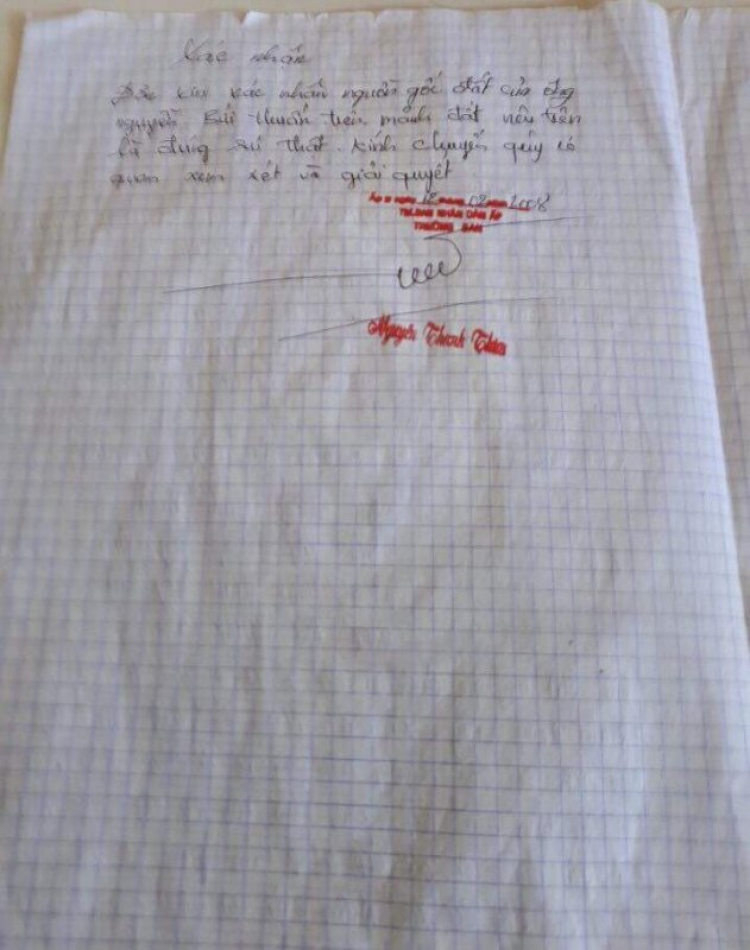 Xác nhận
xác nhận nguồn gốc đất của ông
nguyễn Bùi thuấn trên mảnh đất nêu trên
là đúng sự thật. Kính chuyển quý cơ
quan xem xét và giải quyết
ngày 18 tháng 02 năm 2008
TM.BAN NHÂN DÂN ẤP
TRƯỜNG SAN
Nguyễn Thanh